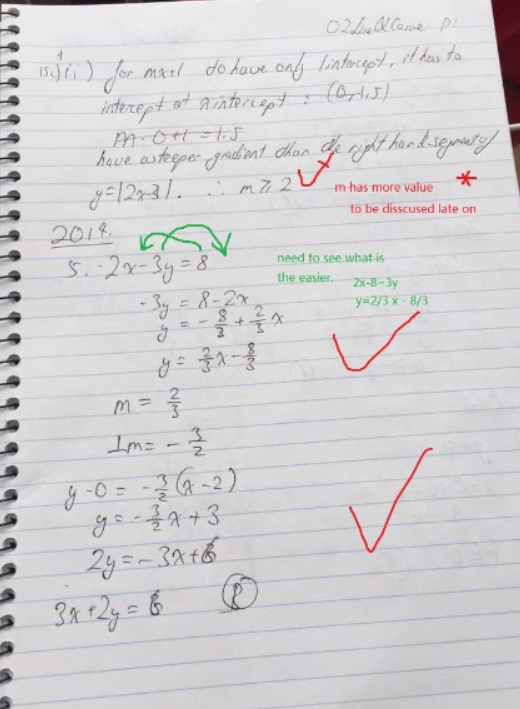 02 Line & Curve P1
4
15.) ii) for mx+1 do have only 1 intercept, it has to
intercept at x intercept : (0, 1.5)
m·0+1=1.5
have a steeper gradient than the right hand segment of
y=|2x-3|. ∴ m ≥ 2
m has more value *
to be disscused late on
2014.
5. 2x-3y=8
need to see what is
the easier.
2x-8=3y
y=2/3 x - 8/3
-3y = 8-2x
y = -8/3 + 2/3 x
y = 2/3 x - 8/3
m = 2/3
⊥m = -3/2
y-0 = -3/2 (x-2)
y = -3/2 x + 3
2y = -3x+6
3x+2y = 6 (B)